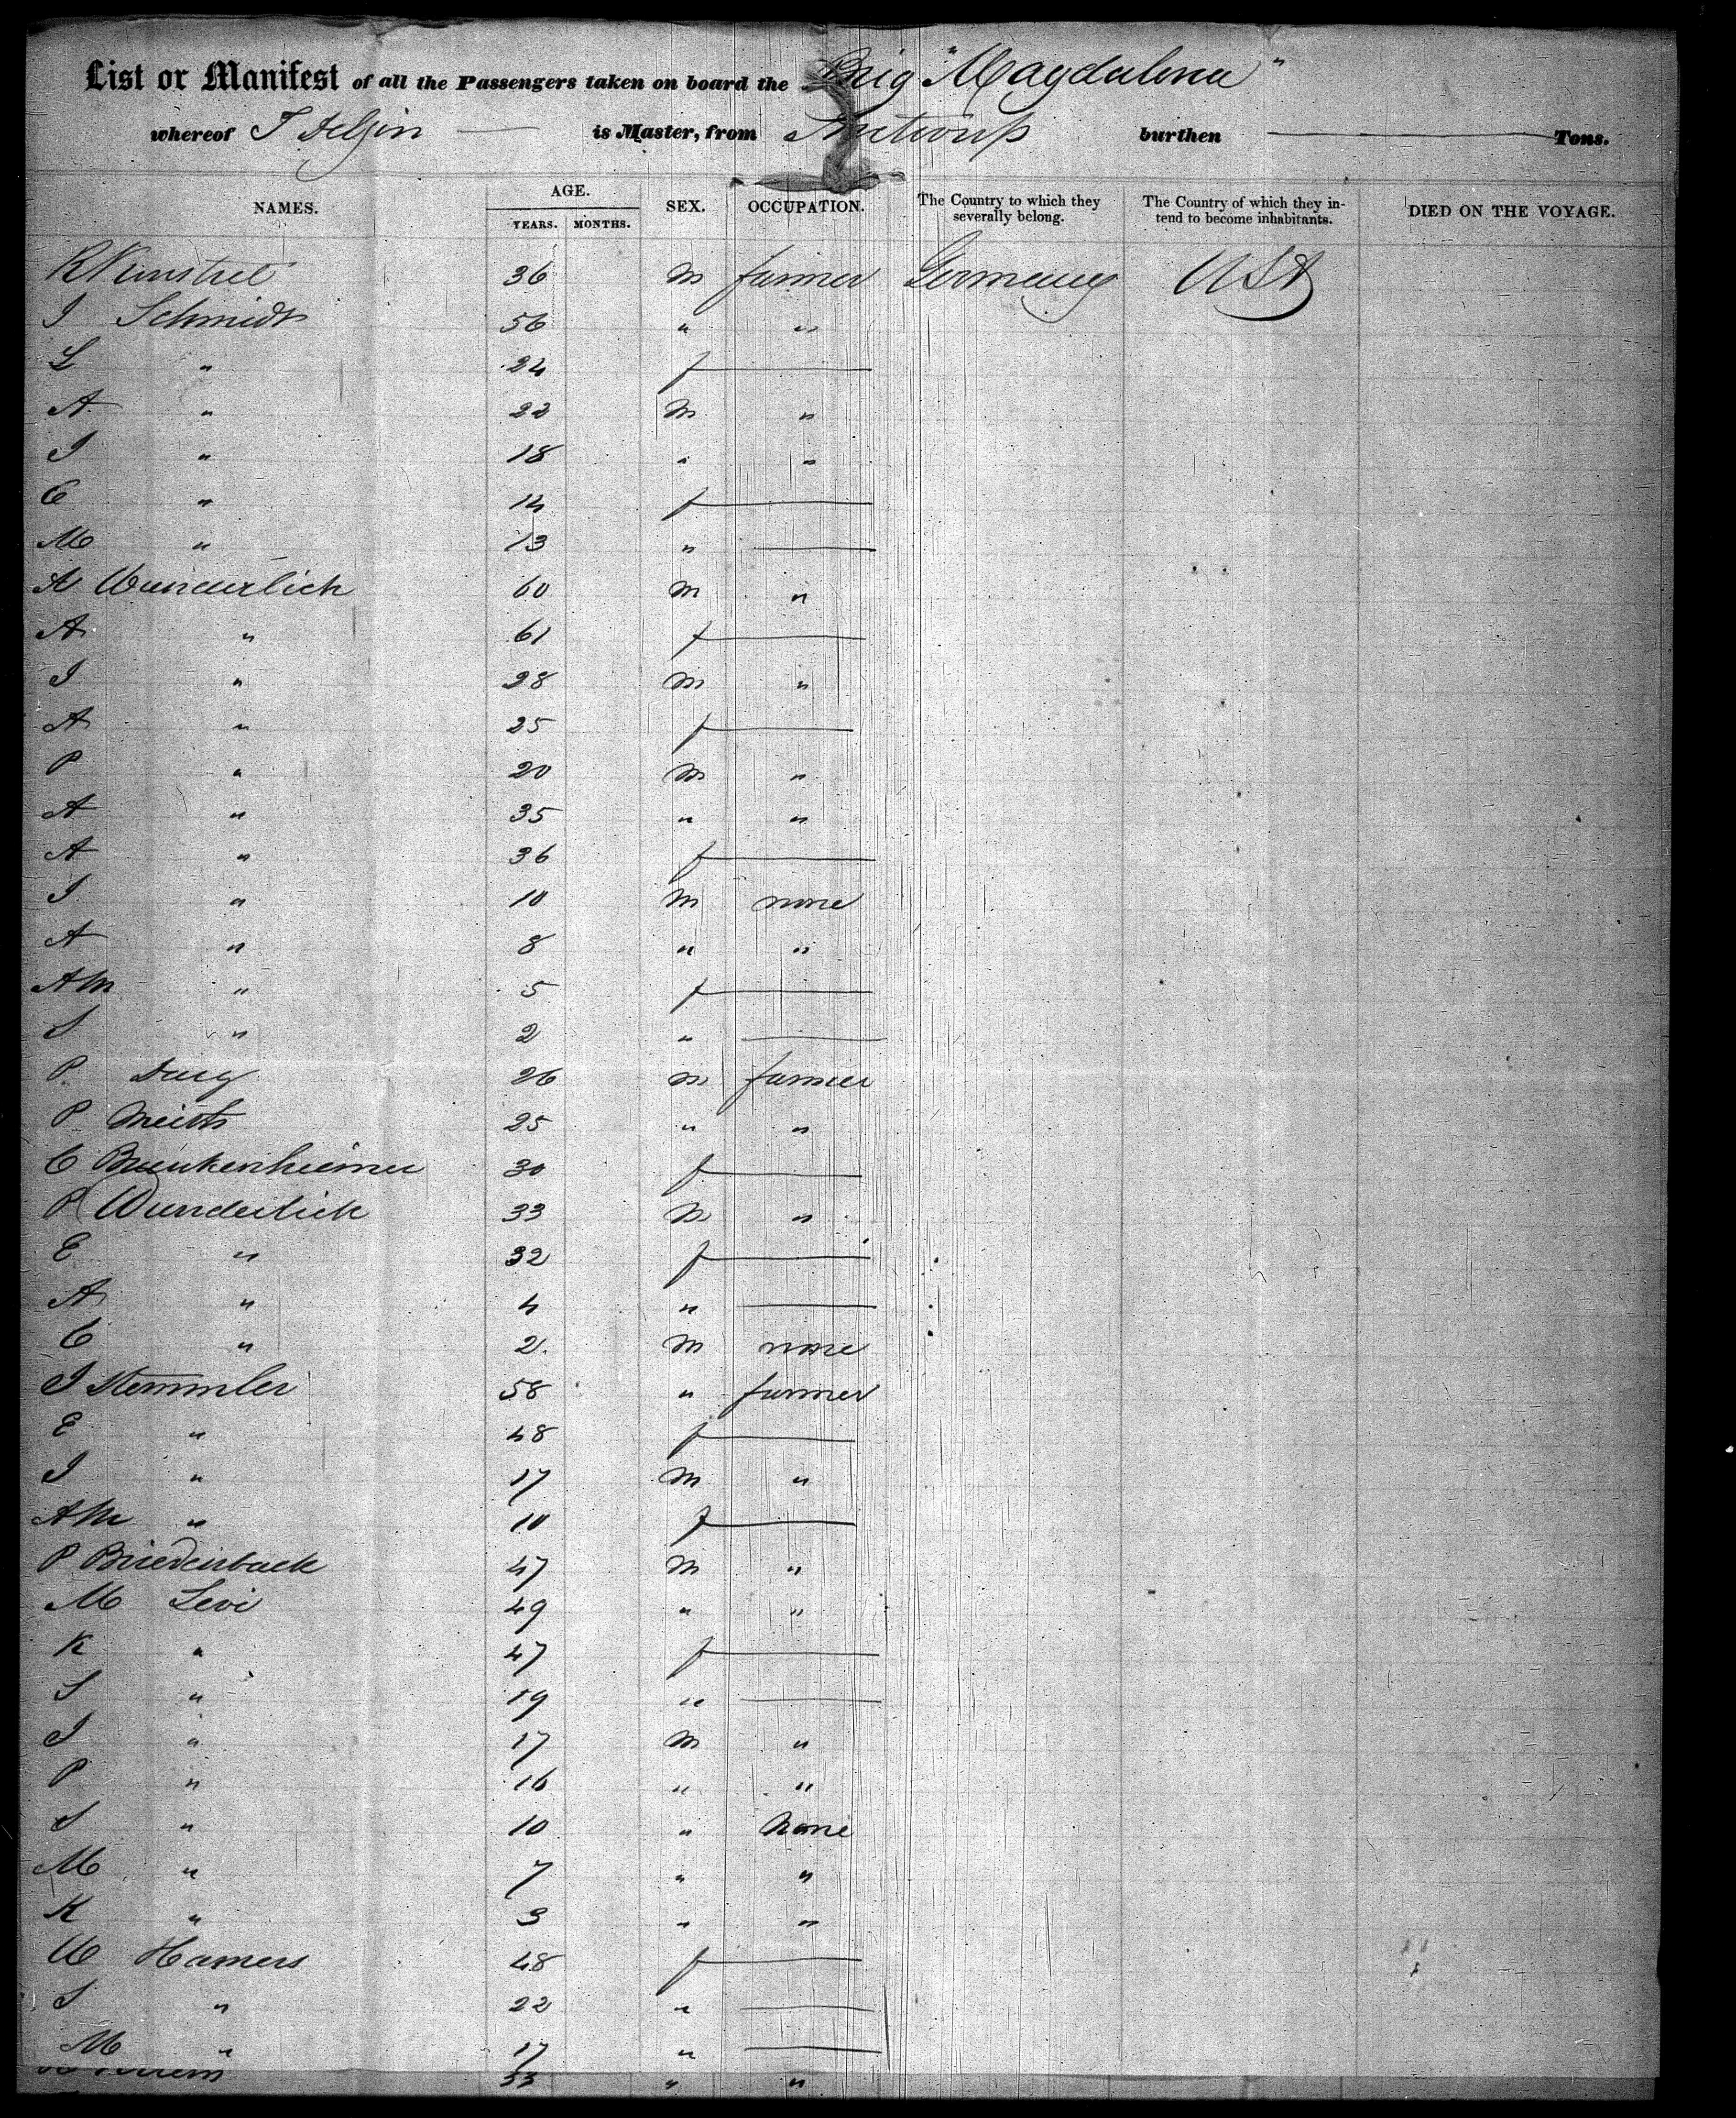 List or Manifest of all the Passengers taken on board the Brig "Magdalena"
whereof is Master, from burthen Tons.
NAMES. AGE. SEX. OCCUPATION. The Country to which they severally belong. The Country of which they intend to become inhabitants. DIED ON THE VOYAGE.
YEARS. MONTHS.
36 m farmer Germany USA
J Schmidt 56 " "
L " 24 f
A " 22 m "
J " 18 " "
C " 14 f
M " 13 "
A Wunderlich 60 m "
A " 61 f
J " 28 m "
A " 25 f
P " 20 m "
A " 35 " "
A " 36 f
J " 10 m none
A " 8 " "
AM " 5 f
S " 2 "
P. 26 m farmer
P 25 " "
C 30 f
P Wunderlich 33 m "
E " 32 f
A " 4 "
C " 2. m none
J Stemmler 58 " farmer
E " 48 f
J " 17 m "
AM " 10 f
P 47 m "
M Levi 49 " "
K " 47 f
S " 19 "
J " 17 m "
P " 16 " "
S " 10 " None
M " 7 " "
K " 3 " "
Hamers 48 f
S " 22 "
M " 17 "
33 " "